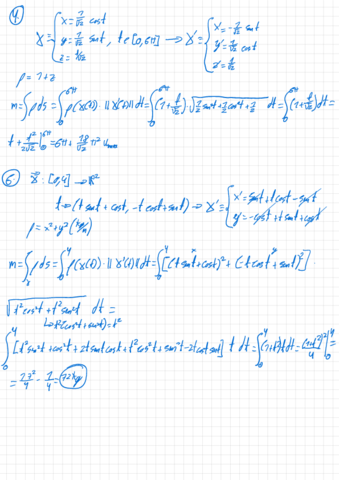 4)
γ { x = 1/√2 cos t
y = 1/√2 sin t, t ∈ [0, 6π] → γ' { x' = -1/√2 sin t
z = t/√2
y' = 1/√2 cos t
z' = 1/√2
ρ = 1+z
m = ∫ρ ds = ∫₀^6π ρ(γ(t)) · ||γ'(t)|| dt = ∫₀^6π (1 + t/√2) · √(1/2 sin²t + 1/2 cos²t + 1/2) dt = ∫₀^6π (1 + t/√2) dt =
t + t²/2√2 |₀^6π = 6π + 18/√2 π²
5) γ : [0,4] → ℝ²
t → (t sin t + cos t, -t cos t + sin t) → γ' { x' = sin t + t cos t - sin t
y' = -cos t + t sin t + cos t
ρ = x² + y²
m = ∫ρ ds = ∫₀^4 ρ(γ(t)) · ||γ'(t)|| dt = ∫₀^4 [(t sin t + cos t)² + (-t cos t + sin t)²]
√(t² cos²t + t² sin²t) dt =
t²(cos²t + sin²t) = t²
∫₀^4 [t² sin²t + cos²t + 2t sin t cos t + t² cos²t + sin²t - 2t cos t sin t] t dt = ∫₀^4 (1+t²) t dt = (1+t²)²/4 |₀^4 =
= 17²/4 - 1/4 = 72 kg